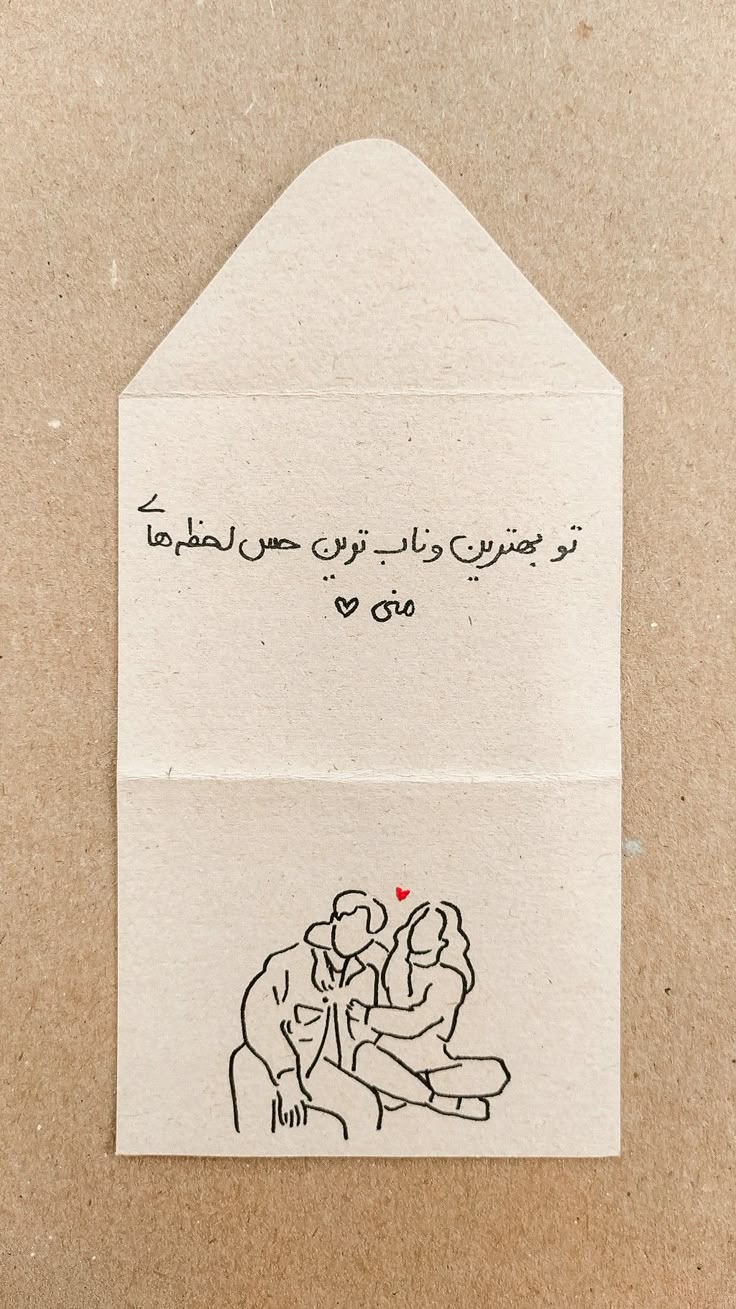 تو بهترین و ناب ترین حس لحظه هاے
منی ♥